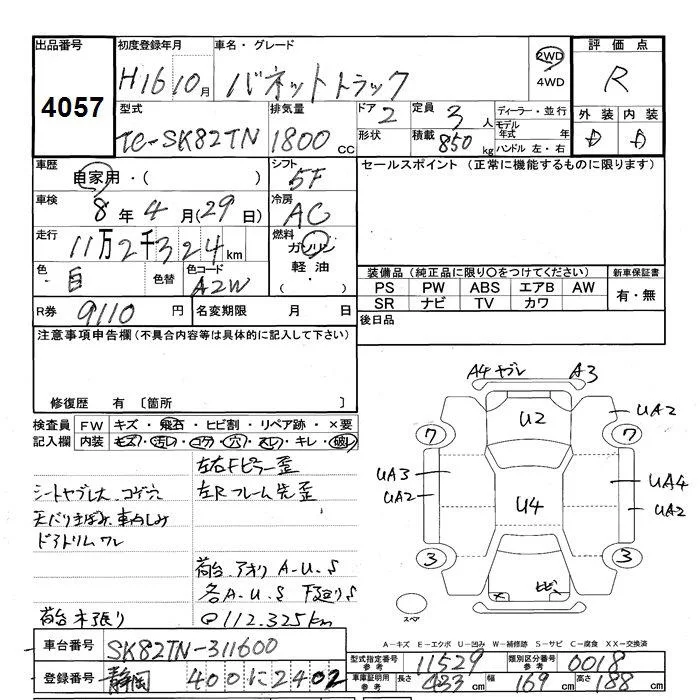 出品番号
4057
初度登録年月
H16 10月
車名・グレード
バネットトラック
2WD
4WD
評価点
R
外装 内装
D D
型式
TC-SK82TN
排気量
1800 CC
ドア
2
形状
定員 3 人
積載 850 kg
ディーラー・並行
モデル年式 年
ハンドル 左・右
車歴
自家用・( )
シフト
5F
セールスポイント (正常に機能するものに限ります)
車検
8年 4月(29日)
冷房
AC
走行
11万2千324km
燃料
ガソリン
軽油
( )
色
白
色替
色コード
A2W
装備品 (純正品に限り○をつけてください)
新車保証書
PS PW ABS エアB AW
SR ナビ TV カワ
有・無
R券 9110 円
名変期限 月 日
後日品
注意事項申告欄 (不具合内容等は具体的に記入して下さい)
修復歴 有 〔箇所
検査員記入欄
FW キズ・飛石・ヒビ割・リペア跡・×要
内装 キズ・汚レ・コゲ・穴・スレ・キレ・破レ
左右Fピラー歪
シートヤブレ大 コゲ穴
左Rフレーム先歪
ドアトリムワレ
荷台.アオリ A.U.S
各A.U.S 下廻りS
荷台木張り
@112.325km
A4 ヤブレ A3
U2
UA2
7 7
UA3
UA2
U4
UA4
UA2
3 3
スペア
A-キズ E-エクボ U-凹み W-補修跡 S-サビ C-腐食 XX-交換済
車台番号 SK82TN-311600
登録番号 静岡 400 に 2402
型式指定番号 参考 11529
類別区分番号 参考 0018
車庫証明用 参考 長さ 433 cm 幅 169 cm 高さ 188 cm